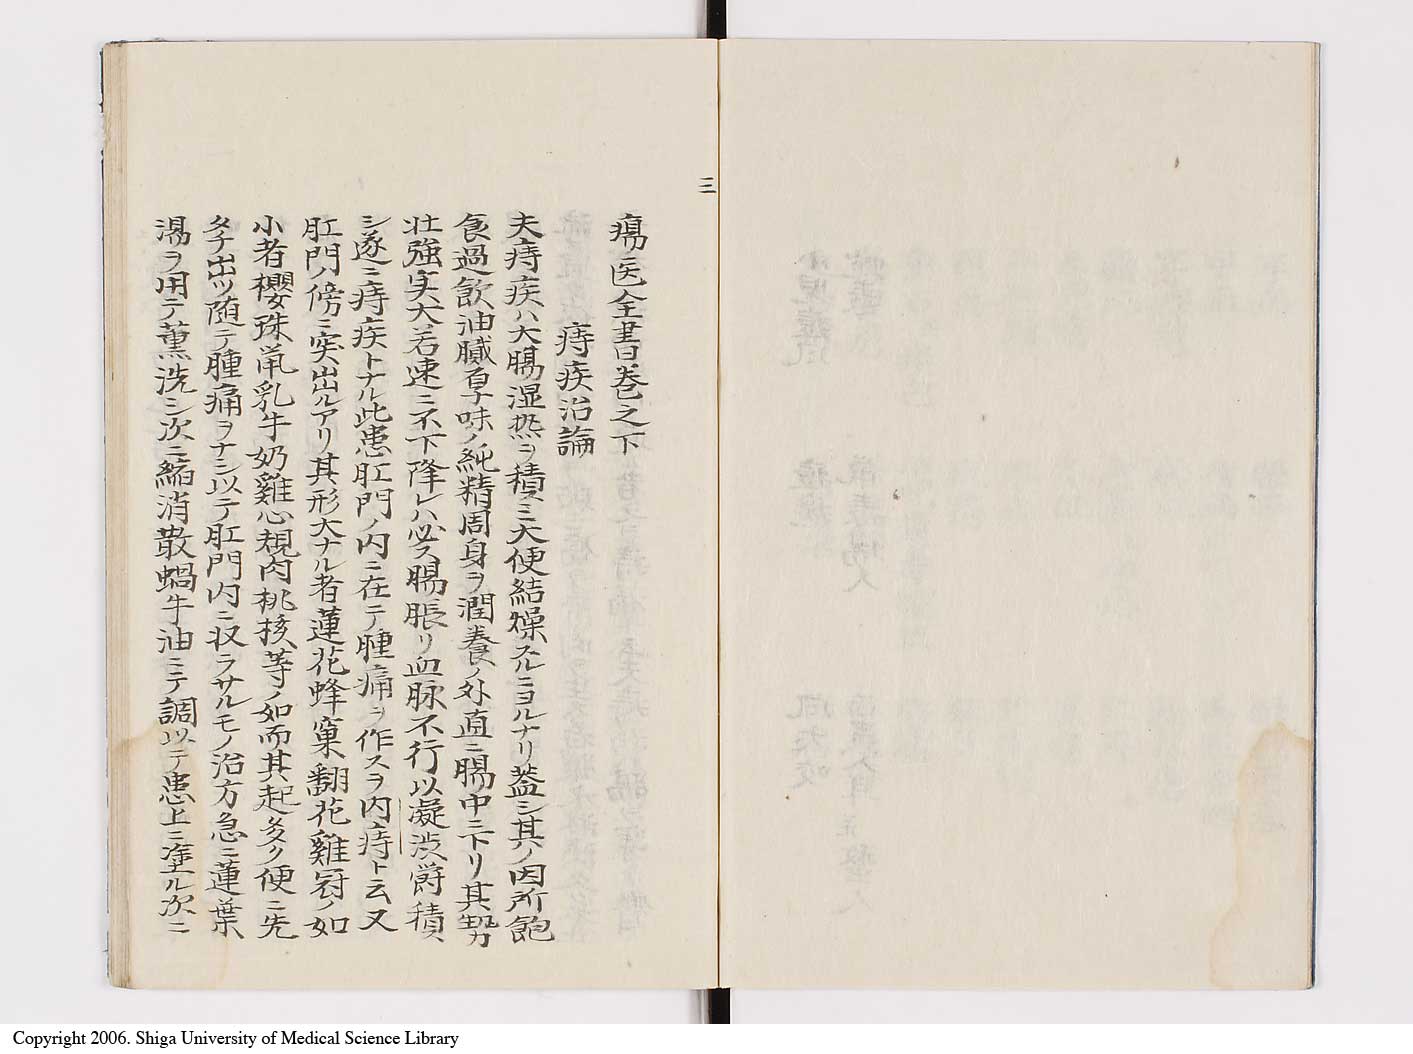 三
瘍医全書巻之下
痔疾治論
夫痔疾ハ大腸湿热ヲ積スミ大便結燥スルニヨルナリ蓋シ其ノ因所飽
食過飲油膩厚味ノ純精周身ヲ潤養ノ外直ニ腸中ニ下リ其勢
壮強実大若速ニ不下降レハ必ス腸脹リ血脉不行以凝渋欝積ス
シ遂ニ痔疾トナル此患肛門ノ内ニ在テ腫痛ヲ作スヲ内痔ト云又
肛門ノ傍ニ突出ルアリ其形大ナル者蓮花蜂窠翻花雞冠ノ如
小者櫻珠鼠乳牛奶雞心規肉桃核等ノ如而其起多ク便ニ先
タチ出ツ随テ腫痛ヲナシ以テ肛門内ニ収ラサルモノ治方急ニ蓮葉
湯ヲ用テ薫洗シ次ニ縮消散蝸牛油ニテ調以テ患上ニ塗ル次ニ
Copyright 2006. Shiga University of Medical Science Library